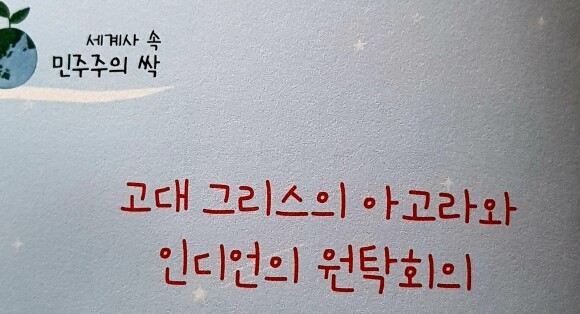 세계사 속
민주주의 싹
고대 그리스의 아고라와
인디언의 원탁회의